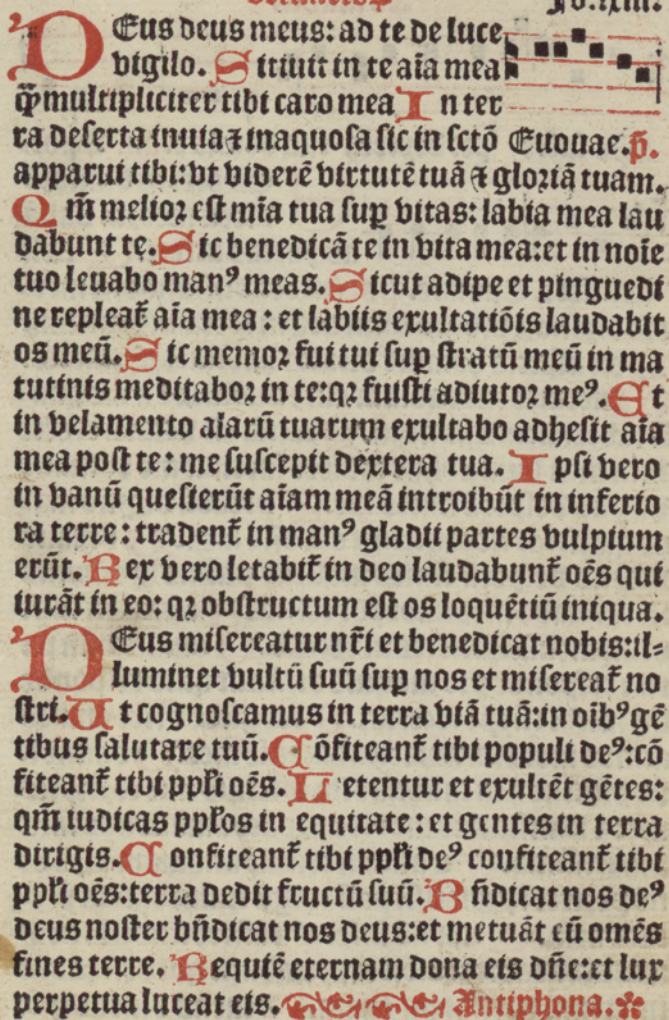 Deus deus meus: ad te de luce
vigilo. Sitiuit in te aīa mea
q̄ꝫ multipliciter tibi caro mea In ter
ra deserta inuia ⁊ inaquosa sic in sctō Euouae. p̄.
apparui tibi: vt viderē virtutē tuā ⁊ gloꝛiā tuam.
Qm̄ melioꝛ est mīa tua suꝑ vitas: labia mea lau
dabunt te. Sic benedicā te in vita mea: et in noīe
tuo leuabo manꝰ meas. Sicut adipe et pinguedi
ne repleat᷑ aīa mea: et labiis exultatiōis laudabit
os meū. Sic memoꝛ fui tui suꝑ stratū meū in ma
tutinis meditaboꝛ in te: qꝛ fuisti adiutoꝛ meꝰ. Et
in velamento alarū tuarum exultabo adhesit aīa
mea post te: me suscepit dextera tua. Ipsi vero
in vanū quesierūt aīam meā introibūt in inferio
ra terre: tradent᷑ in manꝰ gladii partes vulpium
erūt. Rex vero letabit᷑ in deo laudabunt᷑ oēs qui
iurāt in eo: qꝛ obstructum est os loquētiū iniqua.
Deus misereatur nr̄i et benedicat nobis: il-
luminet vultū suū suꝑ nos et misereat᷑ no
stri. Ut cognoscamus in terra viā tuā: in oib̄ꝰ gē
tibus salutare tuū. Cōfiteant᷑ tibi populi deꝰ: cō
fiteant᷑ tibi ppl̄i oēs. Letentur et exultēt gētes:
qm̄ iudicas ppl̄os in equitate: et gentes in terra
dirigis. Confiteant᷑ tibi ppl̄i deꝰ confiteant᷑ tibi
ppl̄i oēs: terra dedit fructū suū. Bn̄dicat nos deꝰ
deus noster bn̄dicat nos deus: et metuāt eū omēs
fines terre. Requiē eternam dona eis dn̄e: et lux
perpetua luceat eis. Antiphona.